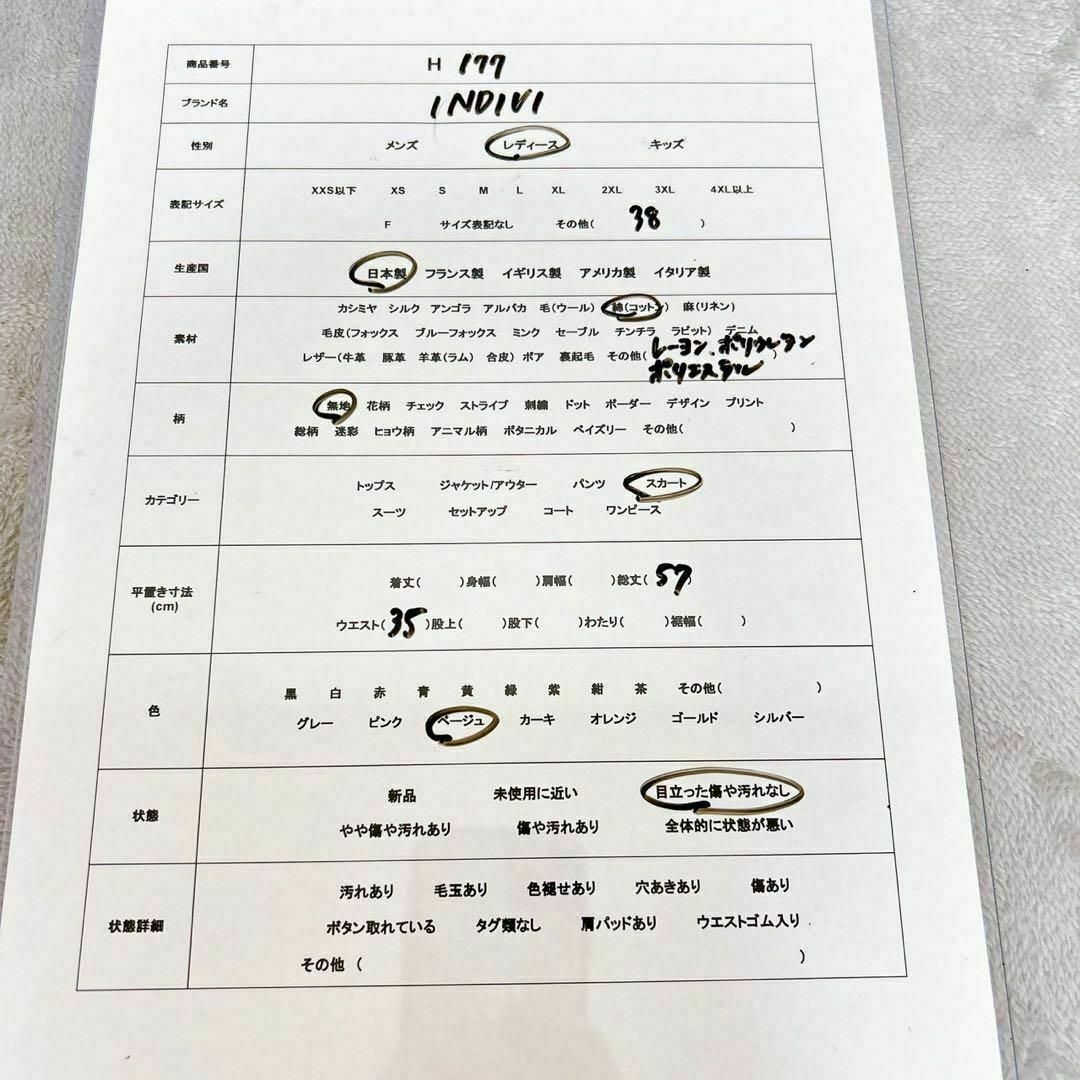 商品番号 H 177
ブランド名 INDIVI
性別 メンズ レディース キッズ
表記サイズ XXS以下 XS S M L XL 2XL 3XL 4XL以上
F サイズ表記なし その他( 38 )
生産国 日本製 フランス製 イギリス製 アメリカ製 イタリア製
素材 カシミヤ シルク アンゴラ アルパカ 毛(ウール) 綿(コットン) 麻(リネン)
毛皮(フォックス ブルーフォックス ミンク セーブル チンチラ ラビット) デニム
レザー(牛革 豚革 羊革(ラム) 合皮) ボア 裏起毛 その他( レーヨン、ポリウレタン )
ポリエステル
柄 無地 花柄 チェック ストライプ 刺繍 ドット ボーダー デザイン プリント
総柄 迷彩 ヒョウ柄 アニマル柄 ボタニカル ペイズリー その他( )
カテゴリー トップス ジャケット/アウター パンツ スカート
スーツ セットアップ コート ワンピース
平置き寸法 着丈( )身幅( )肩幅( )総丈( 57 )
(cm) ウエスト( 35 )股上( )股下( )わたり( )裾幅( )
色 黒 白 赤 青 黄 緑 紫 紺 茶 その他( )
グレー ピンク ベージュ カーキ オレンジ ゴールド シルバー
状態 新品 未使用に近い 目立った傷や汚れなし
やや傷や汚れあり 傷や汚れあり 全体的に状態が悪い
状態詳細 汚れあり 毛玉あり 色褪せあり 穴あきあり 傷あり
ボタン取れている タグ類なし 肩パッドあり ウエストゴム入り
その他 ( )